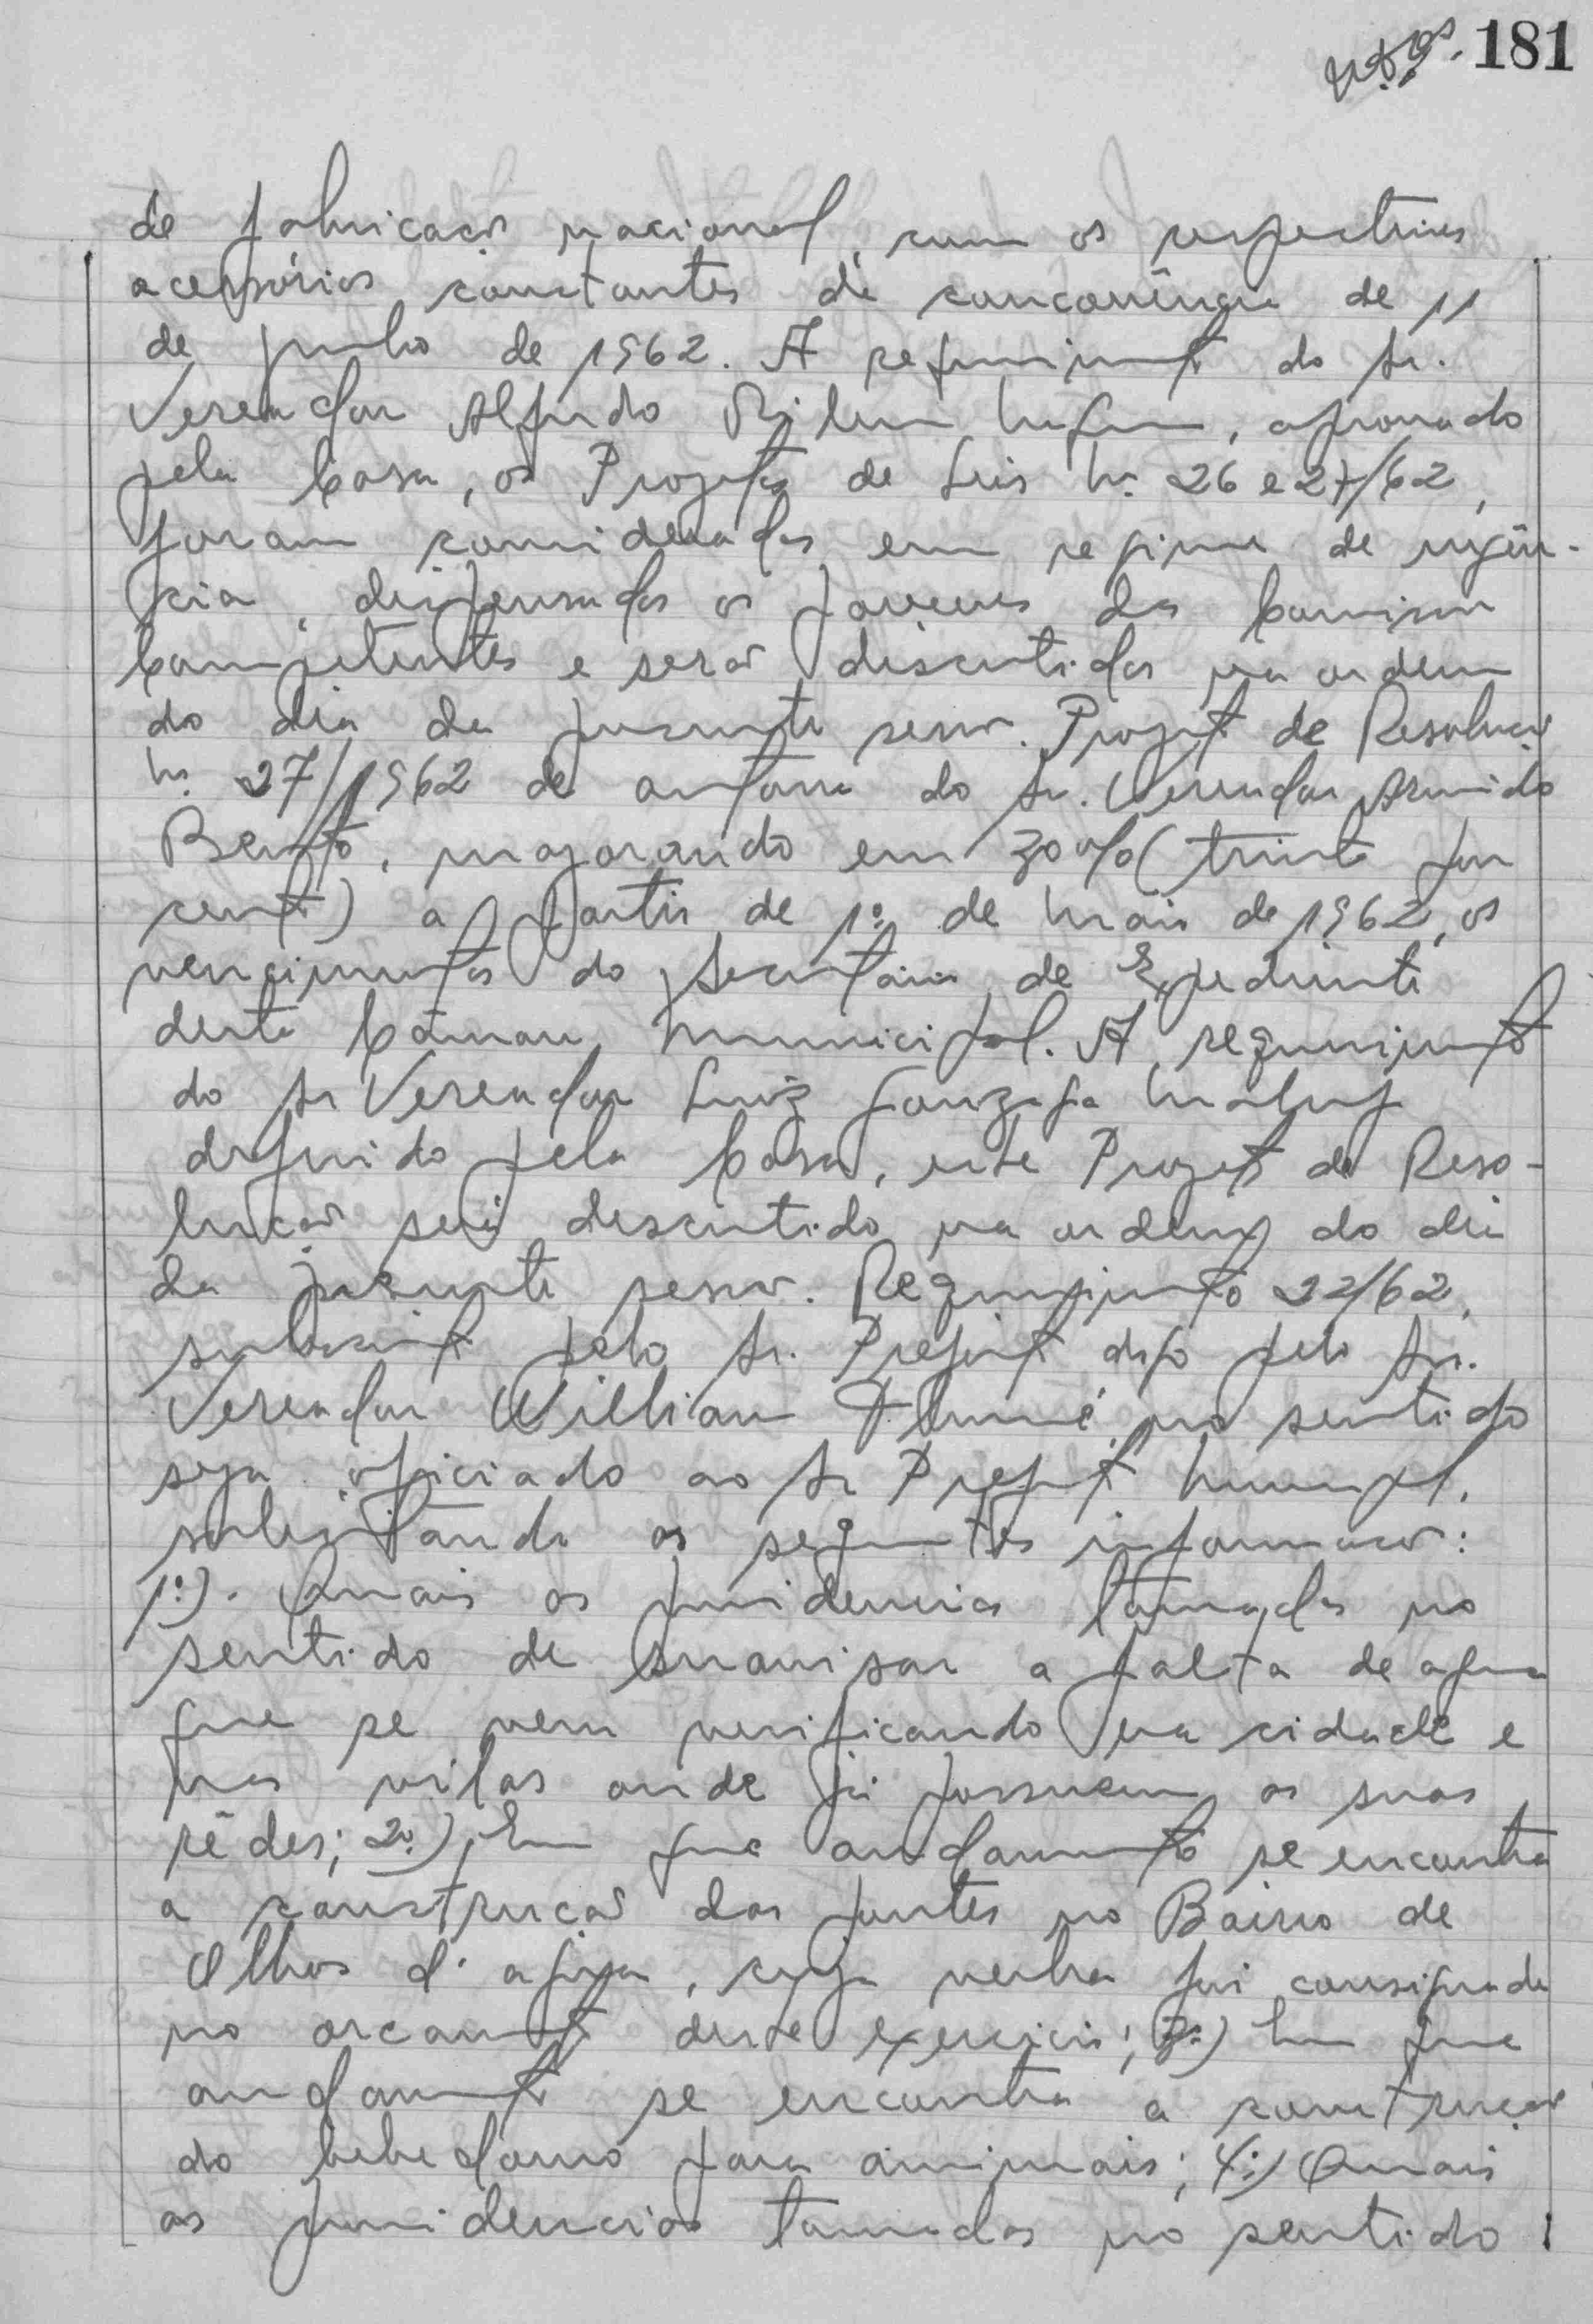 181
de fabricação nacional, com os respectivos
acessórios constantes da concorrência de 11
de junho de 1962. A requerimento do Sr.
Vereador Alfredo, aprovado
pela Casa, os Projetos de Leis Nº 26 e 27/62,
foram considerados em regime de urgên-
cia, dispensados os pareceres das Comissões
Competentes e serão discutidos na ordem
do dia da presente sessão. Projeto de Resolução
Nº 27/1962 de autoria do Sr. Vereador Armindo
Bento, majorando em 30% (trinta por
cento) a partir de 1º de Maio de 1962, os
vencimentos do Secretário de Expediente
desta Câmara Municipal. A requerimento
do Sr Vereador Luiz Gonzaga Maluf
deferido pela Casa, este Projeto de Reso-
lução será discutido na ordem do dia
da presente sessão. Requerimento 22/62,
subscrito pelo Sr. Prefeito digo pelo Sr.
Vereador William no sentido
seja oficiado ao Sr Prefeito Municipal,
solicitando as seguintes informações:
1º). Quais as providencias tomadas no
sentido de suavisar a falta de agua
que se vem verificando na cidade e
nas vilas onde já possuem as suas
rêdes; 2º) Em que andamento se encontra
a construção das fontes no Bairro de
Olhos d'agua, cuja verba foi consignada
no orcamento deste exercicio; 3º) Em que
andamento se encontra a construção
do bebedouro para animais; 4º) Quais
as providencias tomadas no sentido